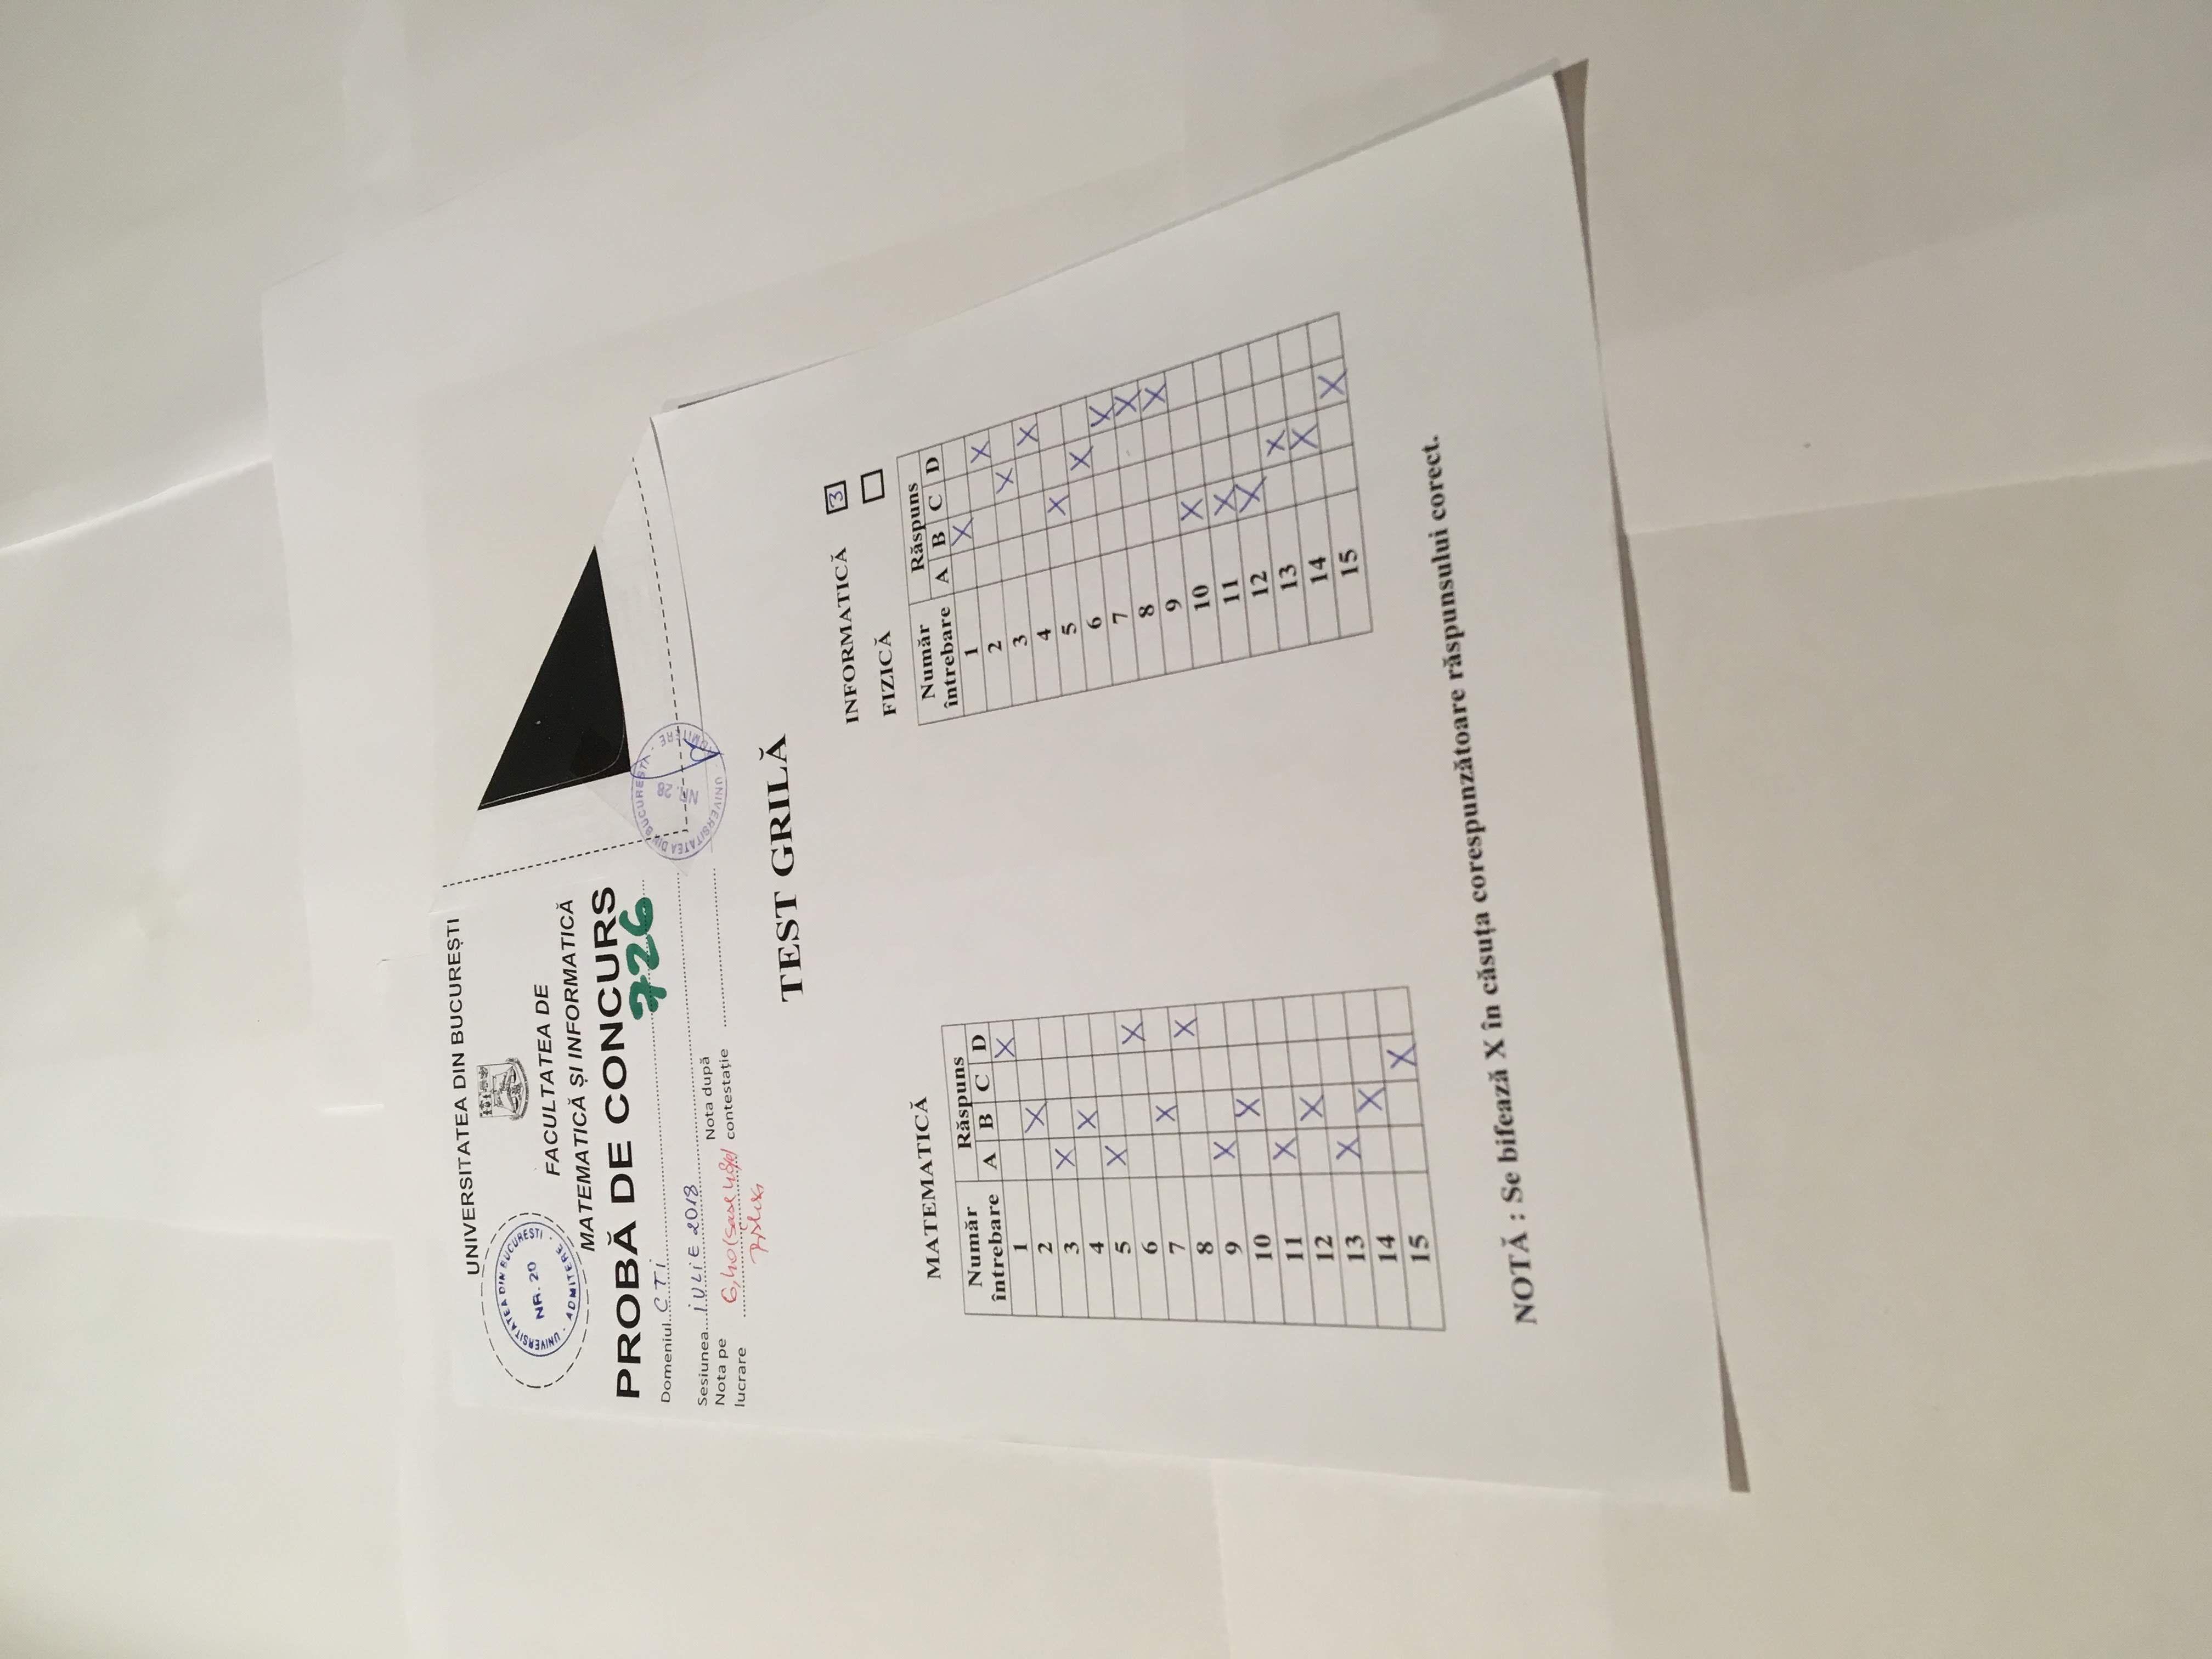 UNIVERSITATEA DIN BUCUREȘTI
UNIVERSITATEA DIN BUCUREȘTI
NR. 20
ADMITERE
FACULTATEA DE
MATEMATICĂ ȘI INFORMATICĂ
PROBĂ DE CONCURS
726
Domeniul CTi
Sesiunea iULiE 2018
Nota pe lucrare 6,40 (șase 40%)
Nota după contestație
UNIVERSITATEA DIN BUCUREȘTI
NR. 28
ADMITERE
TEST GRILĂ
MATEMATICĂ
Număr întrebare Răspuns
A B C D
1 X
2 X
3 X
4 X
5 X
6 X
7 X
8 X
9 X
10 X
11 X
12 X
13 X
14 X
15 X
INFORMATICĂ 3
FIZICĂ
Număr întrebare Răspuns
A B C D
1 X
2 X
3 X
4 X
5 X
6 X
7 X
8 X
9 X
10 X
11 X
12 X
13 X
14 X
15 X
NOTĂ : Se bifează X în căsuța corespunzătoare răspunsului corect.